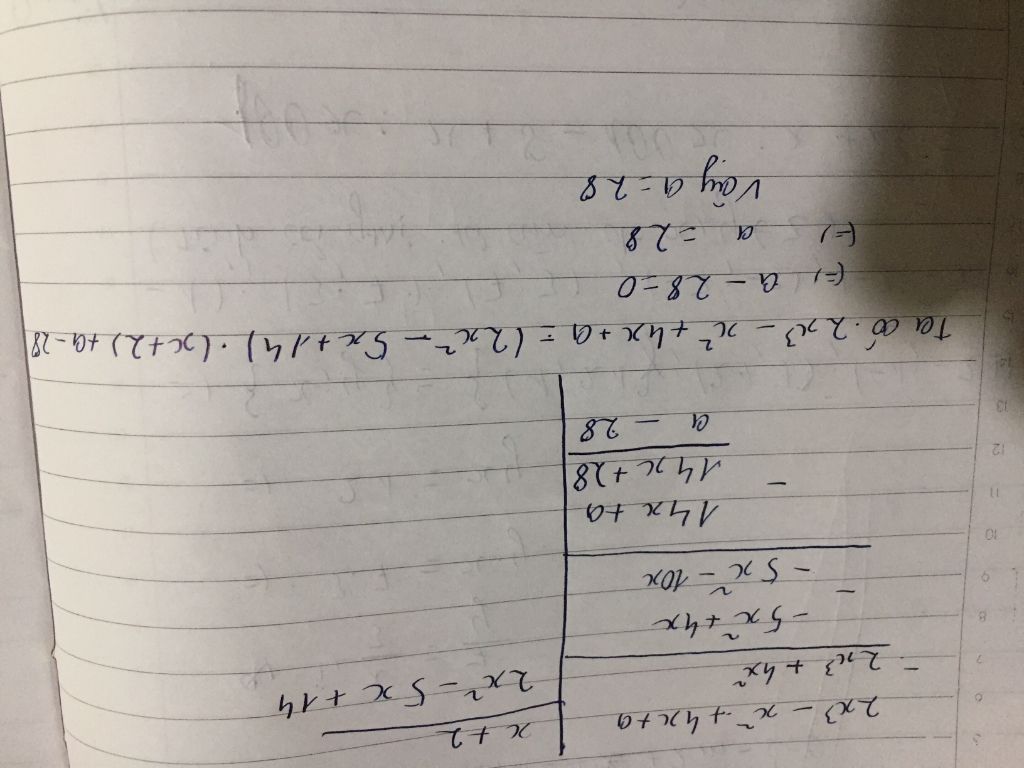 2x³ - x² + 4x + a | x + 2
- 2x³ + 4x² | 2x² - 5x + 14
- 5x² + 4x
- - 5x² - 10x
14x + a
- 14x + 28
a - 28
Ta có: 2x³ - x² + 4x + a = (2x² - 5x + 14) . (x + 2) + a - 28
(=) a - 28 = 0
(=) a = 28
Vậy a = 28